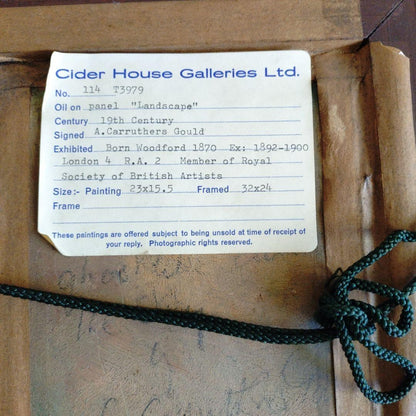 Cider House Galleries Ltd.
No. 114 T3979
Oil on panel "Landscape"
Century 19th Century
Signed A.Carruthers Gould
Exhibited Born Woodford 1870 Ex: 1892-1900
London 4 R.A. 2 Member of Royal
Society of British Artists
Size:- Painting 23x15.5 Framed 32x24
Frame
These paintings are offered subject to being unsold at time of receipt of
your reply. Photographic rights reserved.